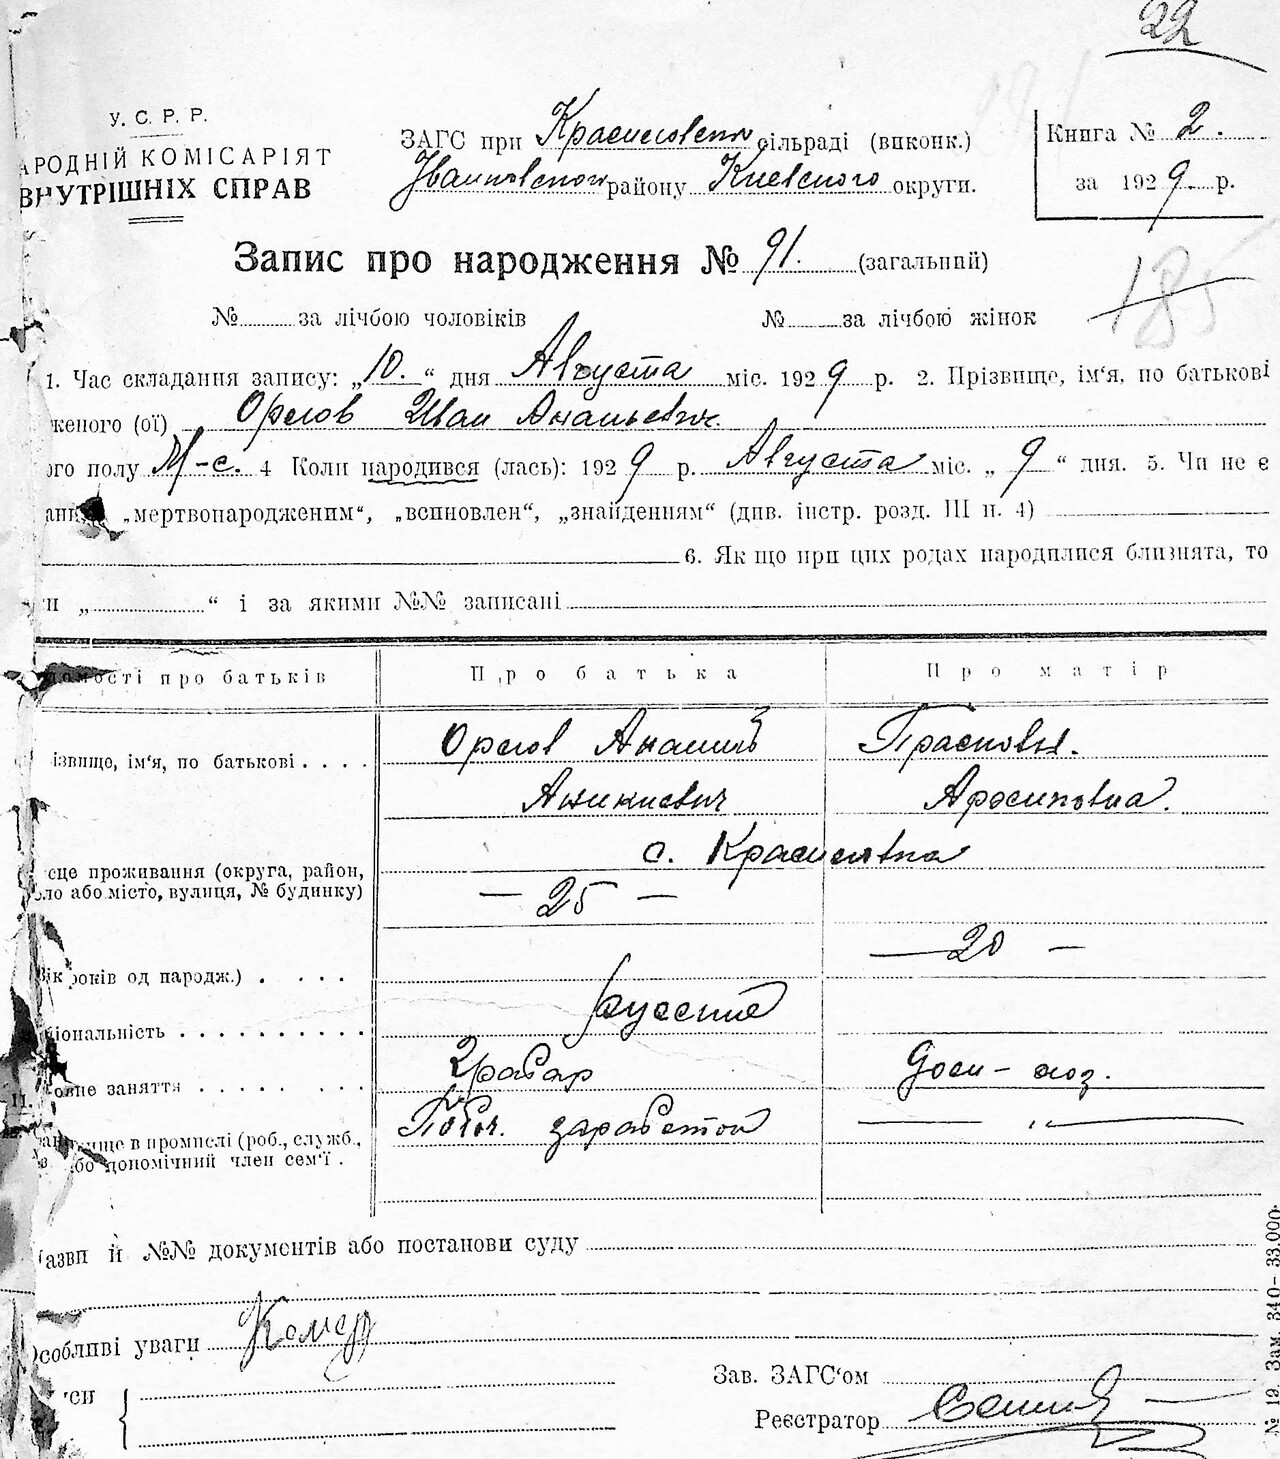 22
У. С. Р. Р.
АРОДНІЙ КОМІСАРІЯТ
ВНУТРІШНІХ СПРАВ
ЗАГС при Красиловской сільраді (виконк.)
Іванковском району Киевского округи.
Книга № 2.
за 1929 р.
Запис про народження № 91. (загальний)
185
№ за лічбою чоловіків № за лічбою жінок
1. Час складання запису: „10.“ дня Августа міс. 1929 р. 2. Прізвище, ім'я, по батькові
женого (ої) Орлов Иван Ананьевич.
ого полу М-с. 4 Коли народився (лась): 1929 р. Августа міс. „9“ дня. 5. Чи не є
„мертвонародженим“, „всиновлен“, „знайденням“ (див. інстр. розд. III п. 4)
6. Як що при цих родах народилися близнята, то
„ “ і за якими №№ записані
домості про батьків Про батька Про матір
ізвище, ім'я, по батькові . . . . Орлов Ананий Прасковья.
Аникиевич
с. Красиловка
сце проживання (округа, район,
ло або місто, вулиця, № будинку) — 25 —
— 20 —
ік років од народж.) . . . .
русские
ціональність . . . . . . . . . .
Грабар Дом-хоз.
овне заняття . . . . . .
Побоч. заработки — „ —
ще в промислі (роб., служб.,
бо допоміжний член сем'ї .
азви й №№ документів або постанови суду
Особливі уваги
Зав. ЗАГС'ом
Реєстратор
№ 19. Зам. 340–33.000